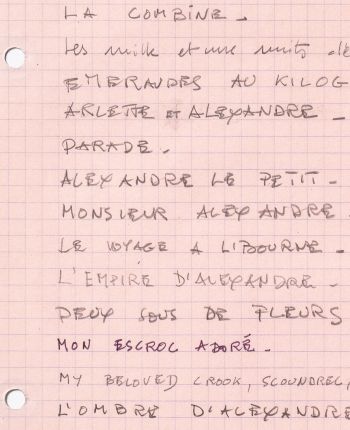 LA COMBINE.
Les mille et une nuits de
EMERAUDES AU KILOG
ARLETTE ET ALEXANDRE.
PARADE.
ALEXANDRE LE PETIT.
MONSIEUR ALEXANDRE.
LE VOYAGE A LIBOURNE.
L'EMPIRE D'ALEXANDRE.
DEUX SOUS DE FLEURS
MON ESCROC ADORÉ.
MY BELOVED CROOK, SCOUNDREL,
L'OMBRE D'ALEXANDRE